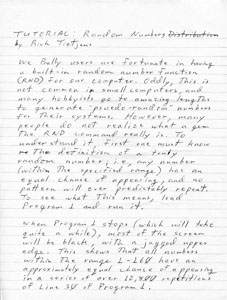 TUTORIAL: Random Numbers Distribution
by Rich Tietjens
We Bally users are fortunate in having
a built-in random number function
(RND) for our computer. Oddly, this is
not common in small computers, and
many hobbyists go to amazing lengths
to generate "psuedo-random" numbers
for their systems. However, many
people do not realize what a gem
the RND command really is. To
understand it, first one must know
the definition of a truly
random number; i.e., any number
(within the specified range) has an
equal chance of appearing, and no
pattern will ever predictably repeat.
To see what this means, load
Program 1 and run it.
When Program 1 stops (which will take
quite a while), most of the screen
will be black, with a jagged upper
edge. This shows that all numbers
within the range 1-160 have an
approximately equal chance of appearing
in a series of over 12,800 repetitions
of Line 30 of Program 1.